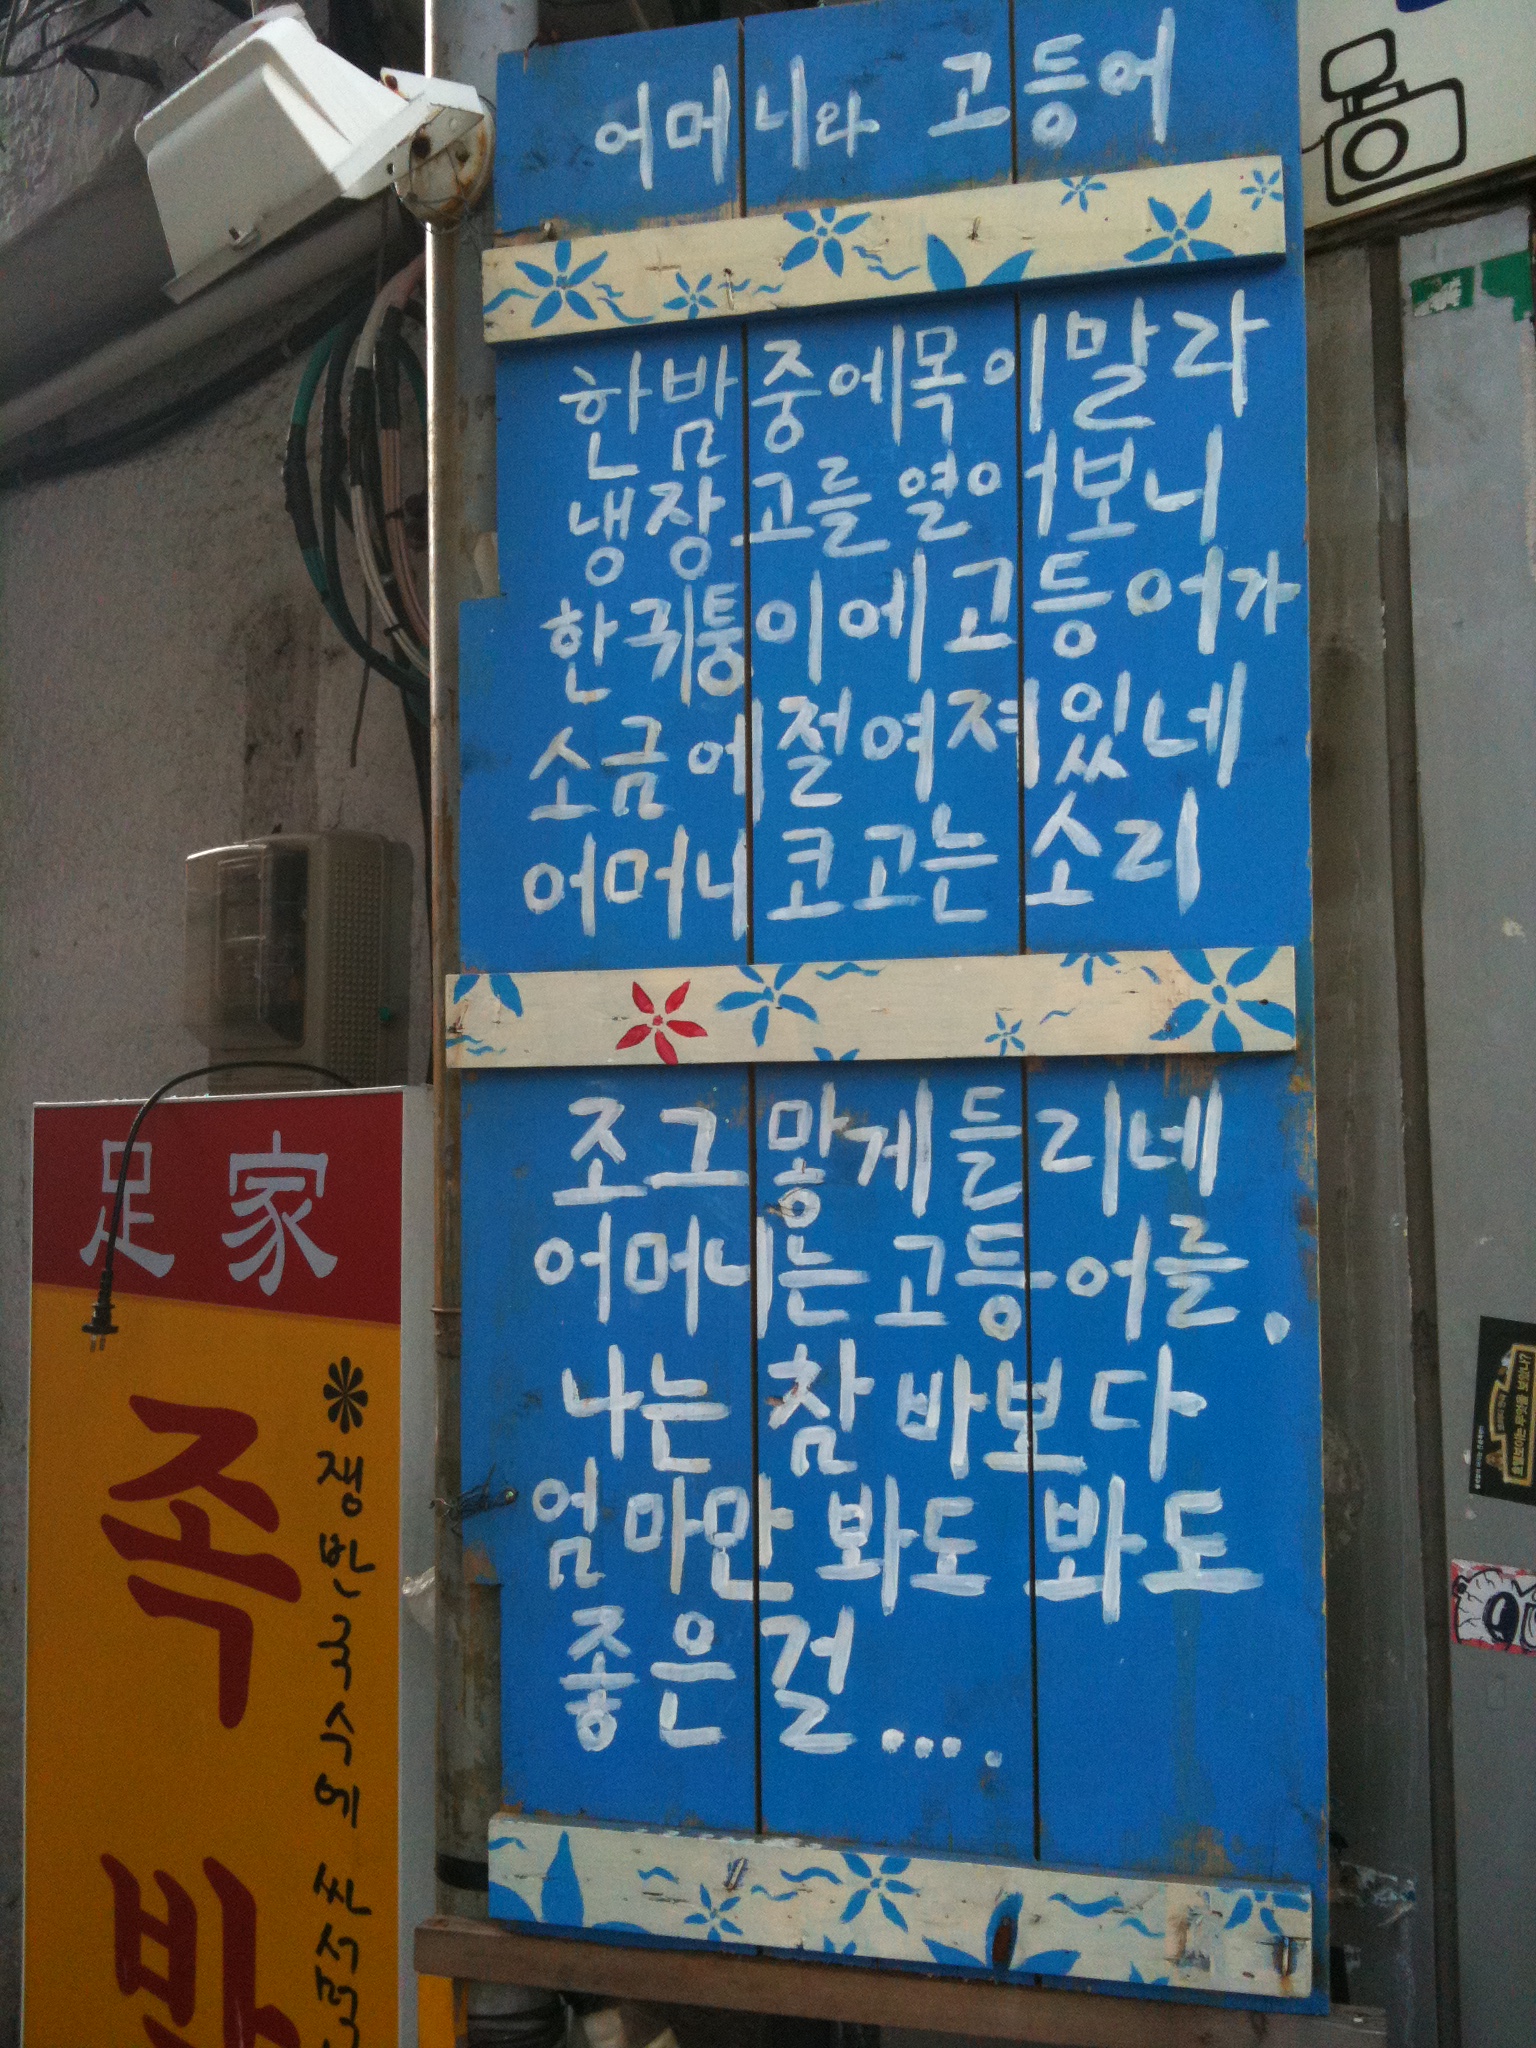 어머니와 고등어
한밤중에 목이 말라
냉장고를 열어보니
한 귀퉁이에 고등어가
소금에 절여져 있네
어머니 코고는 소리
조그맣게 들리네
어머니는 고등어를.
나는 참 바보다
엄마만 봐도 봐도
좋은걸....
足家
족
※쟁반국수에